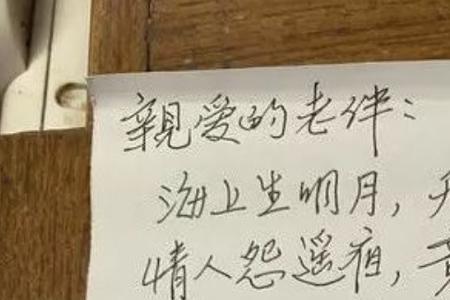 親爱的老伴：
海上生明月，
情人怨遥夜，